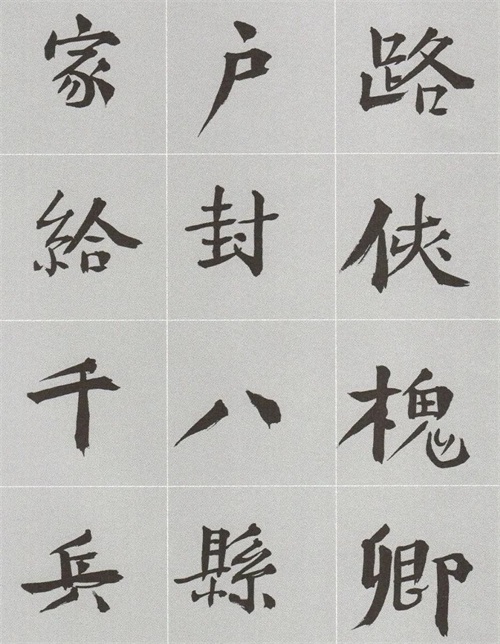 路俠槐卿
户封八縣
家給千兵